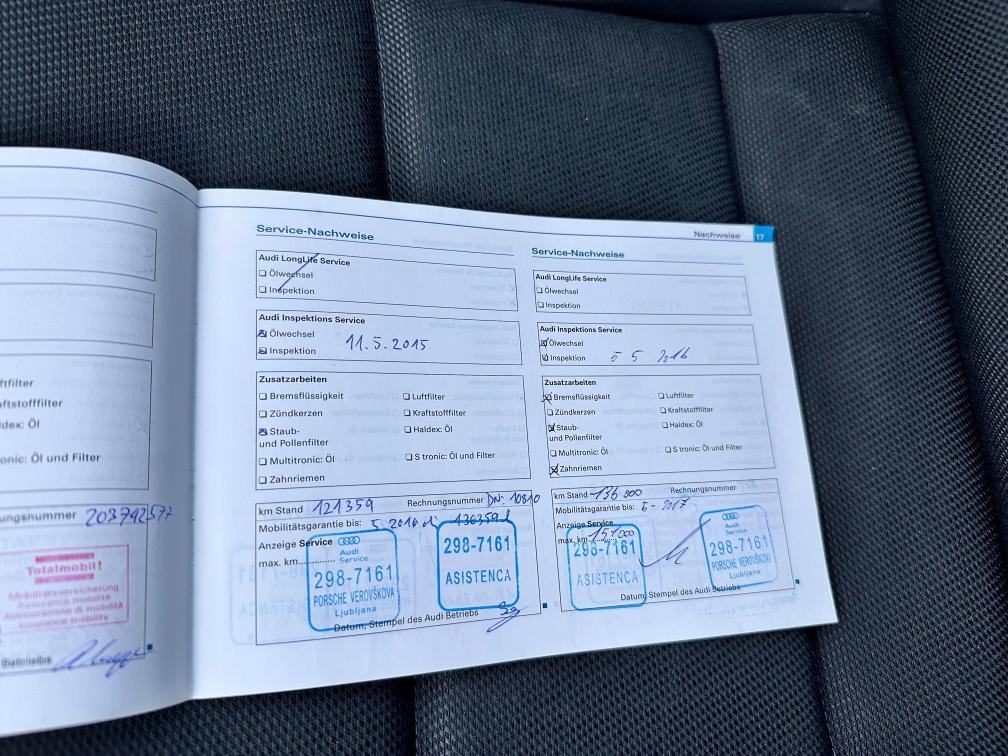 ftfilter
aftstofffilter
ldex: Öl
onic: Öl und Filter
ungsnummer 203792577
Totalmobil!
Mobilitätsversicherung
Assurance mobilité
Assicurazione di mobilità
Insurance mobility
Betriebs
Service-Nachweise
Audi LongLife Service
Ölwechsel
Inspektion
Audi Inspektions Service
Ölwechsel
Inspektion 11.5.2015
Zusatzarbeiten
Bremsflüssigkeit Luftfilter
Zündkerzen Kraftstofffilter
Staub- Haldex: Öl
und Pollenfilter
Multitronic: Öl S tronic: Öl und Filter
Zahnriemen
km Stand 121359 Rechnungsnummer DN: 10810
Mobilitätsgarantie bis: 5.2016
Anzeige Service
max. km
Audi
Service
298-7161
PORSCHE VEROVŠKOVA
Ljubljana
298-7161
ASISTENCA
Datum, Stempel des Audi Betriebs
Nachweise 17
Service-Nachweise
Audi LongLife Service
Ölwechsel
Inspektion
Audi Inspektions Service
Ölwechsel
Inspektion 5 5 2016
Zusatzarbeiten
Bremsflüssigkeit Luftfilter
Zündkerzen Kraftstofffilter
Staub- Haldex: Öl
und Pollenfilter
Multitronic: Öl S tronic: Öl und Filter
Zahnriemen
km Stand 136 800 Rechnungsnummer
Mobilitätsgarantie bis: 5-2017
Anzeige Service
max. km 151000
298-7161
ASISTENCA
Audi
Service
298-7161
PORSCHE VEROVŠKOVA
Ljubljana
Datum, Stempel des Audi Betriebs